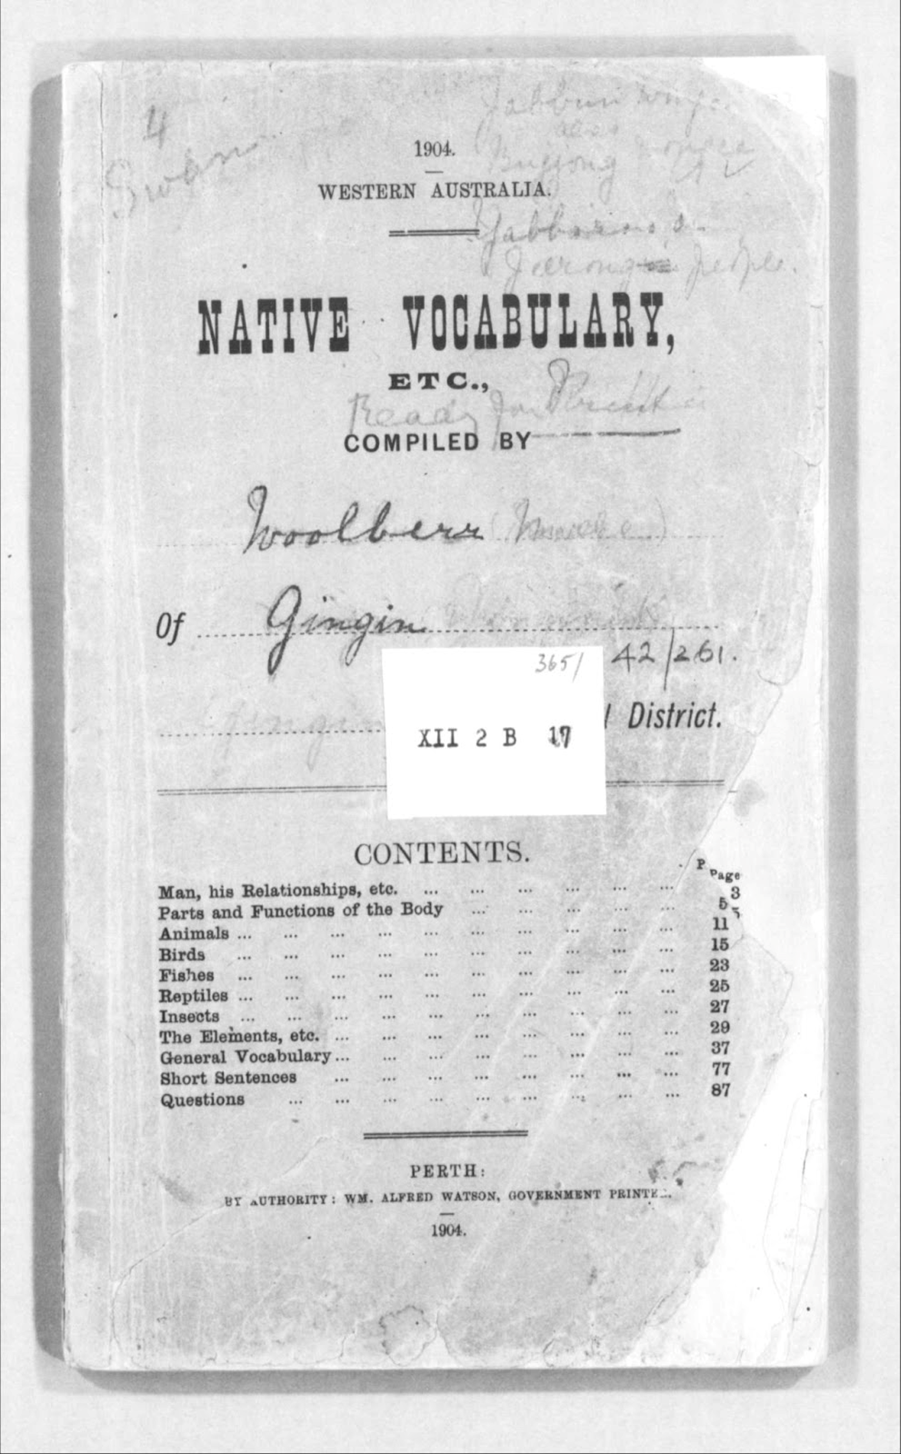 4
Swan
1904.
WESTERN AUSTRALIA.
people.
NATIVE VOCABULARY,
ETC.,
Ready for
COMPILED BY
Woolberr
Of Gingin
3651
42/261.
Gingin District.
XII 2 B 17
CONTENTS.
Page
Man, his Relationships, etc. ... ... ... ... ... ... 3
Parts and Functions of the Body ... ... ... ... ... 5
Animals ... ... ... ... ... ... ... ... ... ... 11
Birds ... ... ... ... ... ... ... ... ... ... 15
Fishes ... ... ... ... ... ... ... ... ... ... 23
Reptiles ... ... ... ... ... ... ... ... ... ... 25
Insects ... ... ... ... ... ... ... ... ... ... 27
The Elements, etc. ... ... ... ... ... ... ... ... 29
General Vocabulary ... ... ... ... ... ... ... ... 37
Short Sentences ... ... ... ... ... ... ... ... 77
Questions ... ... ... ... ... ... ... ... ... 87
PERTH:
BY AUTHORITY: WM. ALFRED WATSON, GOVERNMENT PRINTE
1904.